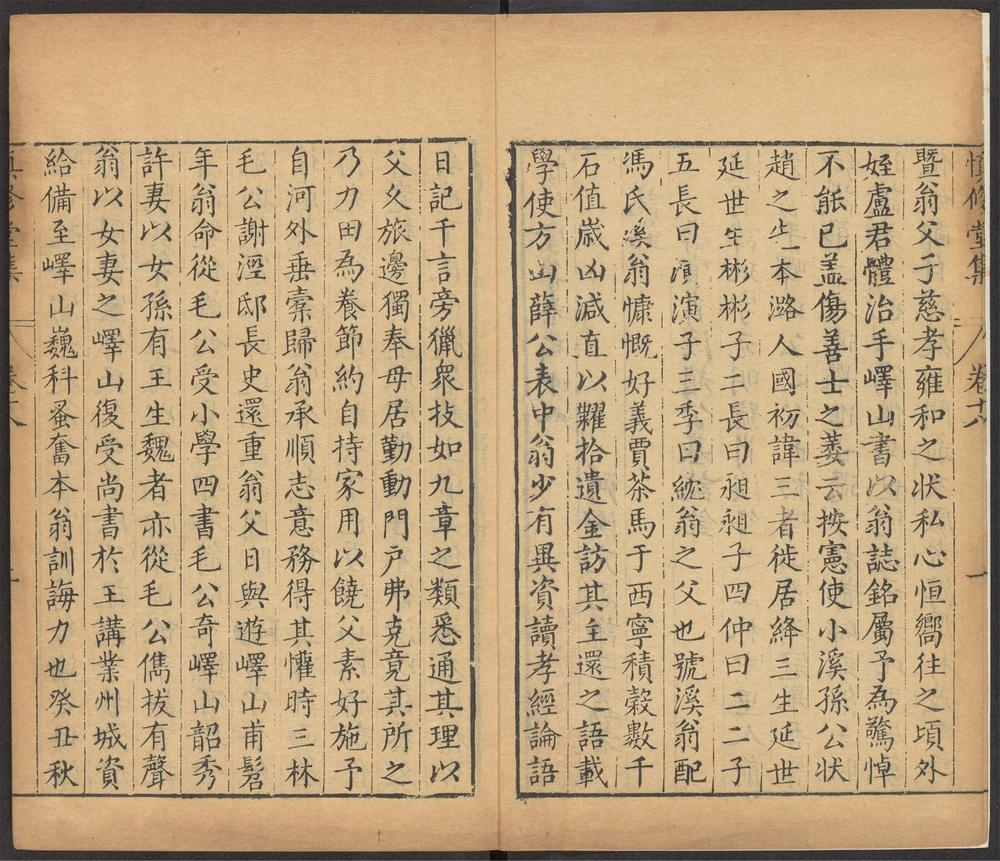 慎修堂集 卷十八 一
暨翁父子慈孝雍和之状私心恒嚮往之頃外
姪盧君體治手嶧山書以翁誌銘屬予為驚悼
不能已盖傷善士之萎云按憲使小溪孫公状
趙之先本潞人國初諱三者徙居絳三生延世
延世生彬彬子二長曰昶昶子四仲曰二二子
五長曰演演子三季曰統翁之父也號溪翁配
馮氏溪翁慷慨好義賈茶馬于西寧積穀數千
石值歲凶減直以糶拾遺金訪其主還之語載
學使方山薛公表中翁少有異資讀孝經論語
日記千言旁獵衆技如九章之類悉通其理以
父久旅邊獨奉母居勤動門户弗克竟其所之
乃力田為養節約自持家用以饒父素好施予
自河外垂橐歸翁承順志意務得其懽時三林
毛公謝涇邸長史還重翁父日與遊嶧山甫髫
年翁命從毛公受小學四書毛公奇嶧山韶秀
許妻以女孫有王生魏者亦從毛公儁拔有聲
翁以女妻之嶧山復受尚書於王講業州城資
給備至嶧山巍科蚤奮本翁訓誨力也癸丑秋